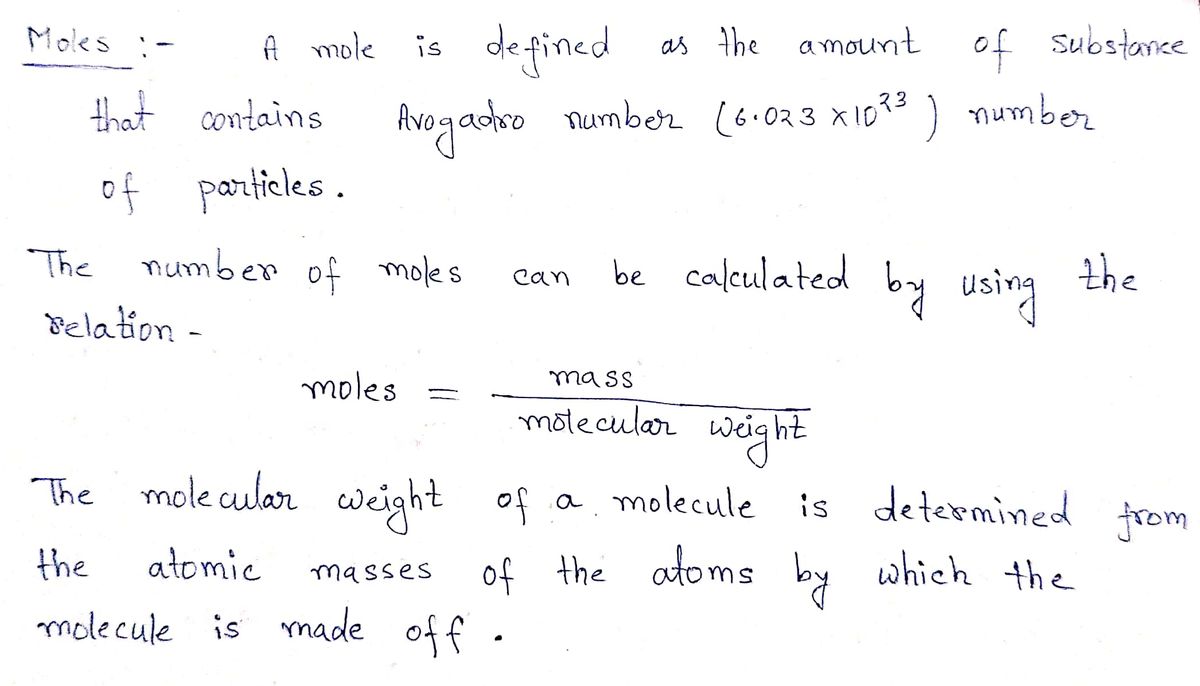 Moles :- A mole is defined as the amount of substance
that contains Avogadro number (6.023 ×10²³) number
of particles.
The number of moles can be calculated by using the
relation -
moles = mass / molecular weight
The molecular weight of a molecule is determined from
the atomic masses of the atoms by which the
molecule is made off.